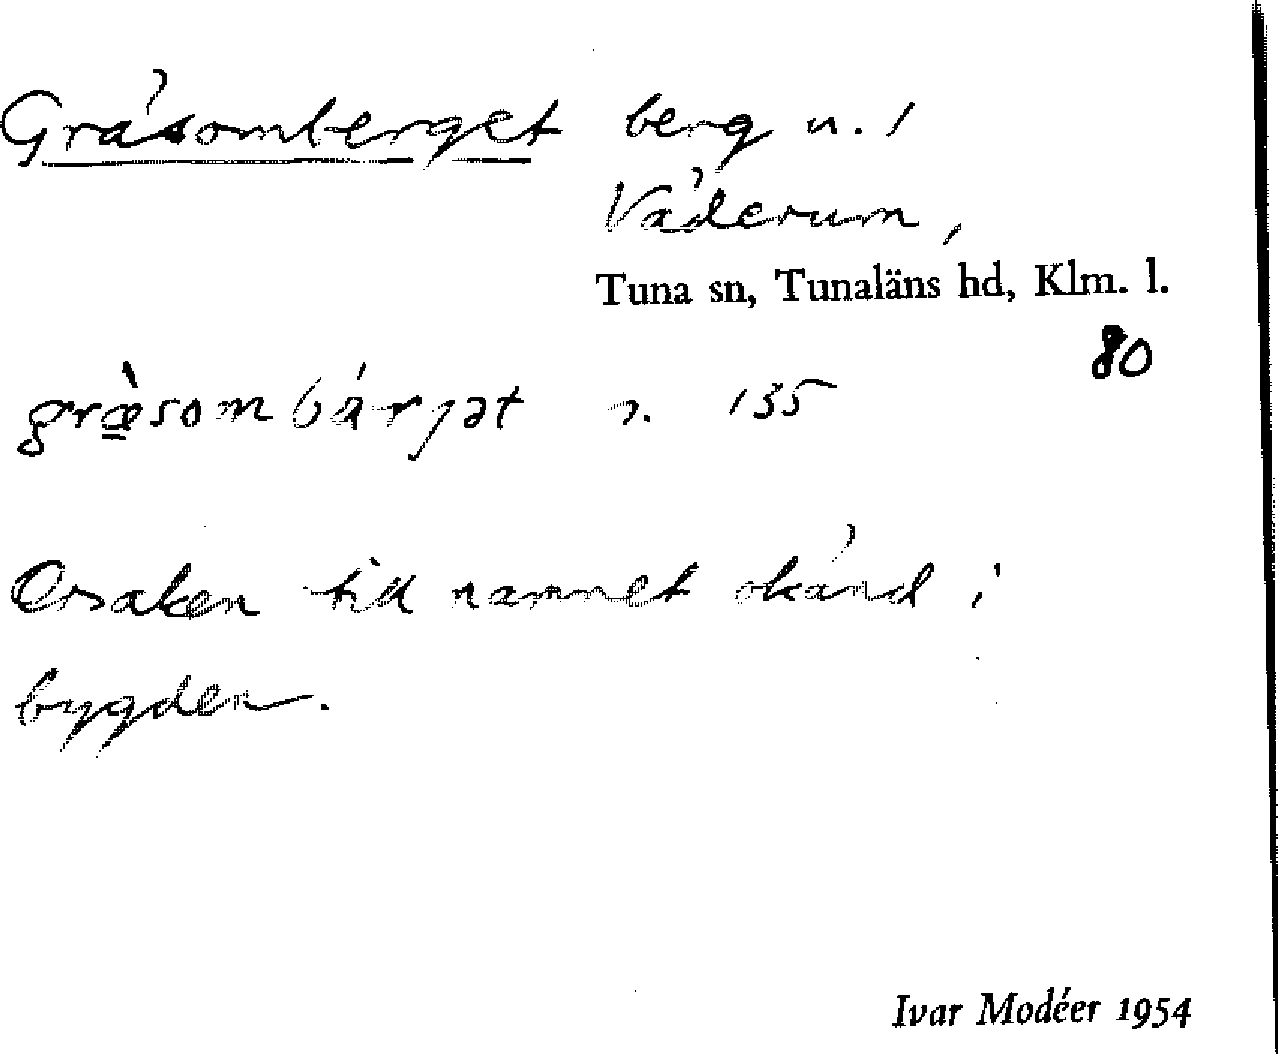 Gräsomberget berg u. 1
Väderum,
Tuna sn, Tunaläns hd, Klm. l.
80
græ̀sombárjət n. 135
Orsaken till namnet okänd i
bygden.
Ivar Modéer 1954